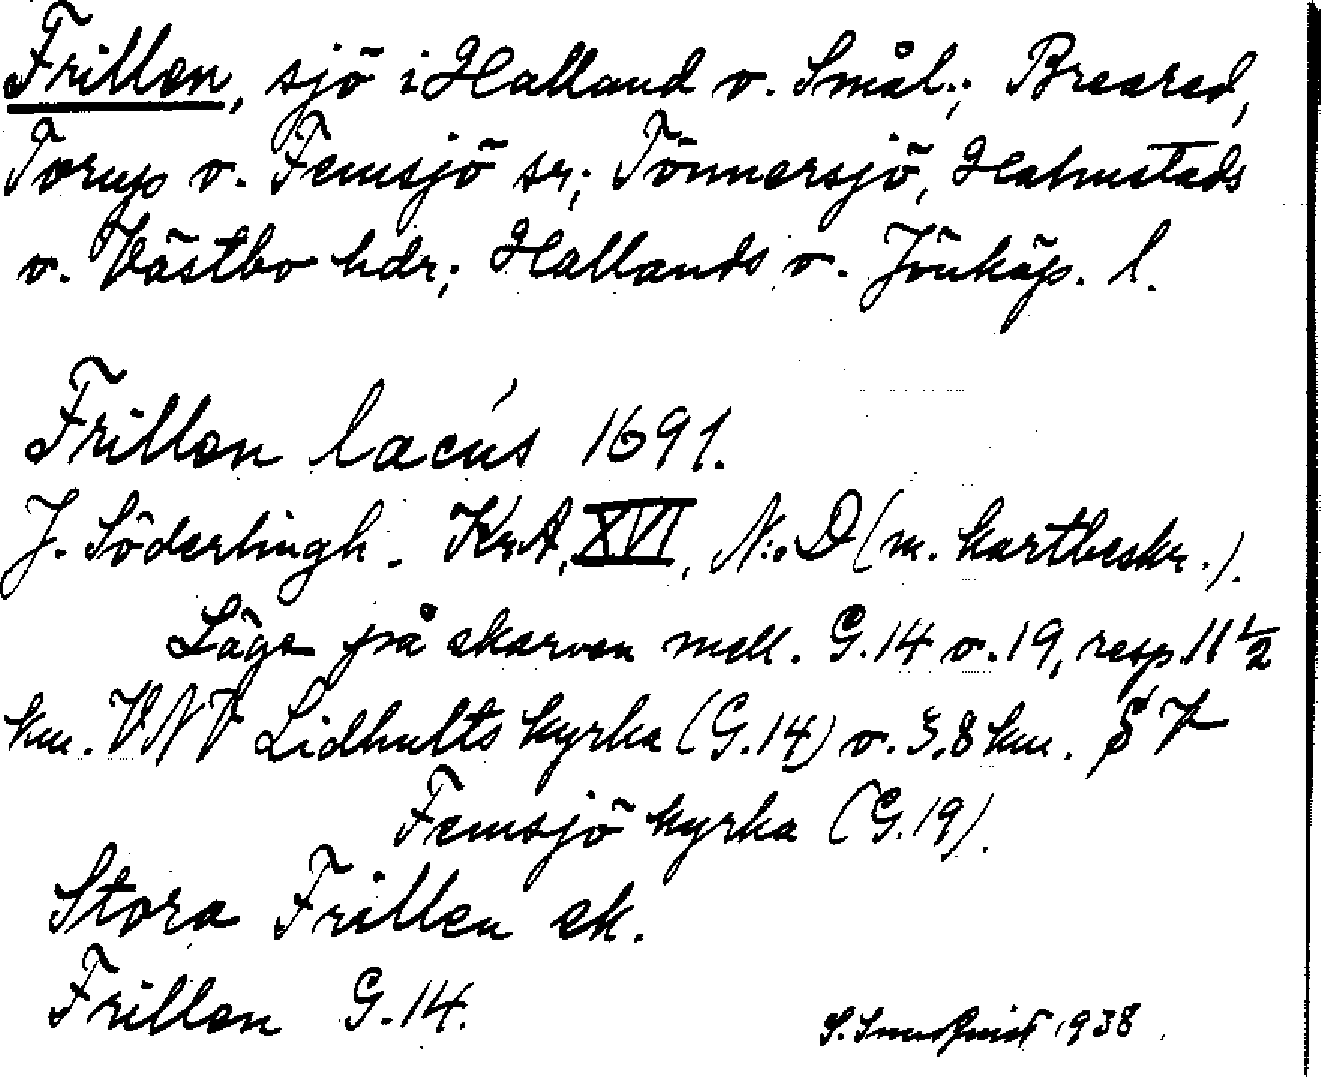 Frillen, sjö i Halland o. Smål.; Breared,
Torup o. Femsjö sr; Tönnersjö, Halmstads
o. Västbo hdr; Hallands o. Jönköp. l.
Frillen lacus 1691.
J. Söderlingh. KrA, XVI, N:o D (m. kartbeskr.).
Läge på skarven mell. G.14 o. 19, resp. 11 1/2
km. VNV Lidhults kyrka (G.14) o. 3,8 km. S
Femsjö kyrka (G.19).
Stora Frillen ek.
Frillen G.14.
1938